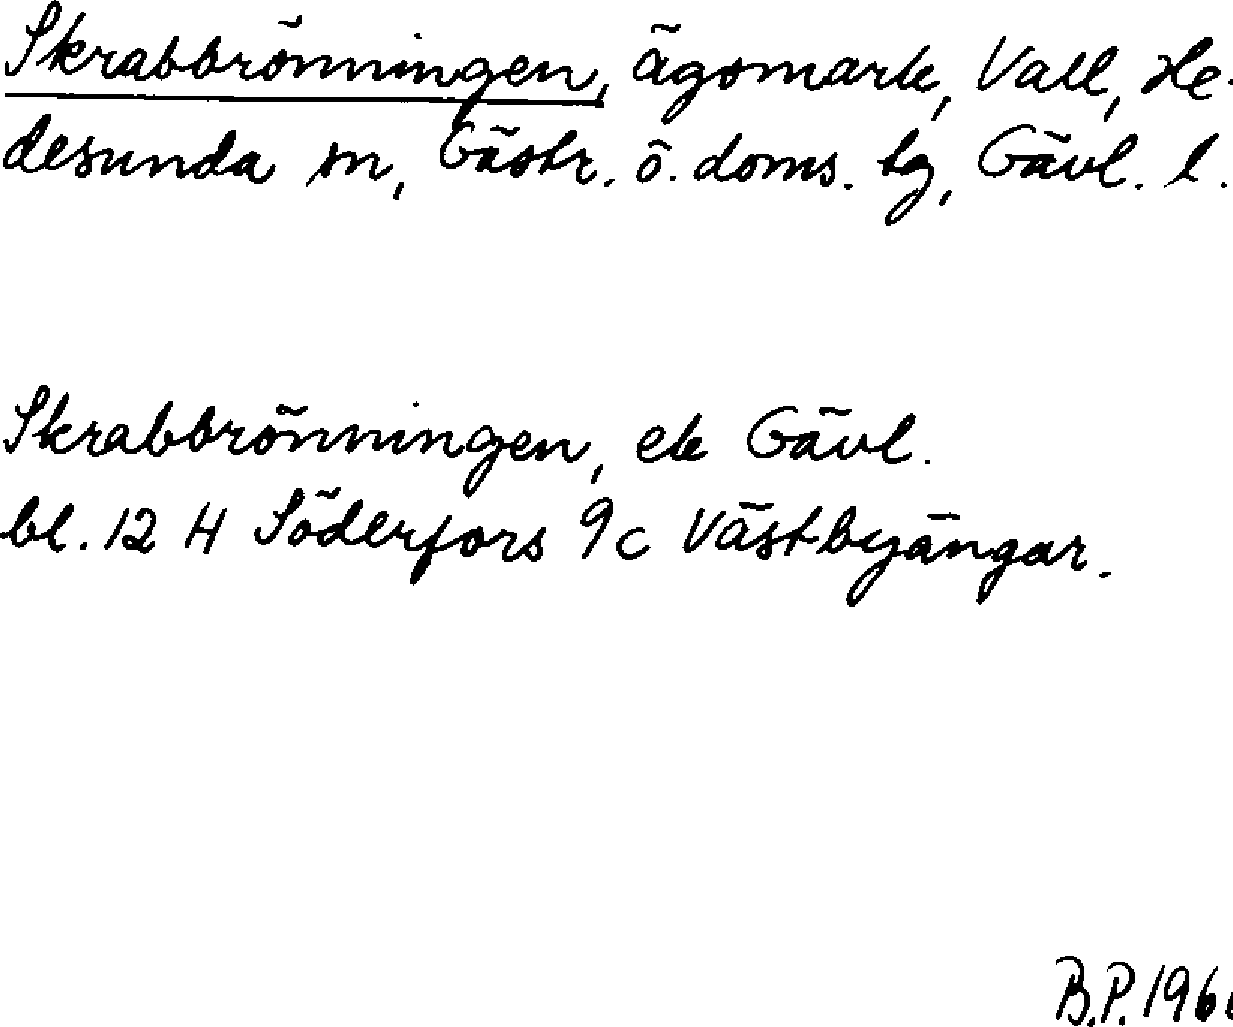 Skrabbrönningen, ägomark, Vall, He-
desunda sn, Gästr. ö. doms. tg, Gävl. l.
Skrabbrönningen, ek Gävl.
bl. 12 H Söderfors 9c Västbyängar.
B.P.